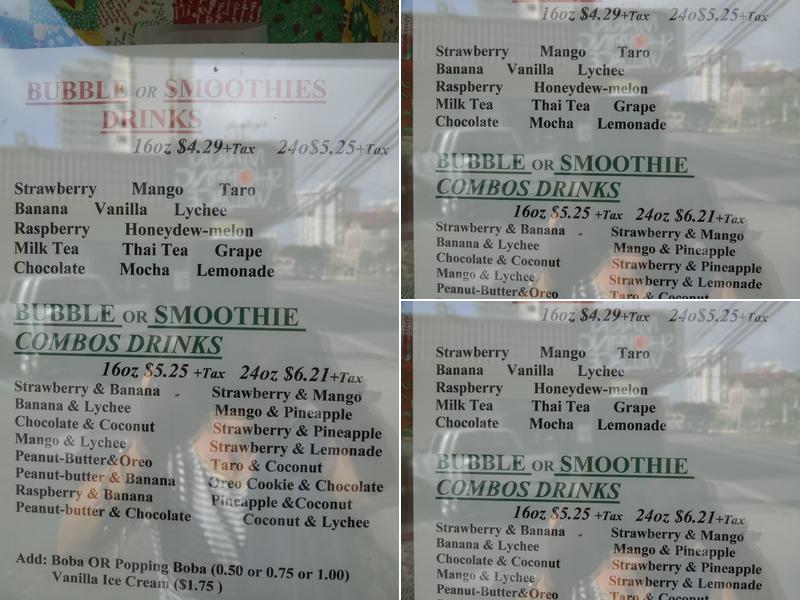 BUBBLE OR SMOOTHIES
DRINKS
16oz $4.29+Tax 24o$5.25+Tax
Strawberry Mango Taro
Banana Vanilla Lychee
Raspberry Honeydew-melon
Milk Tea Thai Tea Grape
Chocolate Mocha Lemonade
BUBBLE OR SMOOTHIE
COMBOS DRINKS
16oz $5.25 +Tax 24oz $6.21+Tax
Strawberry & Banana Strawberry & Mango
Banana & Lychee Mango & Pineapple
Chocolate & Coconut Strawberry & Pineapple
Mango & Lychee Strawberry & Lemonade
Peanut-Butter&Oreo Taro & Coconut
Peanut-butter & Banana Oreo Cookie & Chocolate
Raspberry & Banana Pineapple &Coconut
Peanut-butter & Chocolate Coconut & Lychee
Add: Boba OR Popping Boba (0.50 or 0.75 or 1.00)
Vanilla Ice Cream ($1.75 )
16oz $4.29+Tax 24o$5.25+Tax
Strawberry Mango Taro
Banana Vanilla Lychee
Raspberry Honeydew-melon
Milk Tea Thai Tea Grape
Chocolate Mocha Lemonade
BUBBLE OR SMOOTHIE
COMBOS DRINKS
16oz $5.25 +Tax 24oz $6.21+Tax
Strawberry & Banana Strawberry & Mango
Banana & Lychee Mango & Pineapple
Chocolate & Coconut Strawberry & Pineapple
Mango & Lychee Strawberry & Lemonade
Peanut-Butter&Oreo Taro & Coconut
16oz $4.29+Tax 24o$5.25+Tax
Strawberry Mango Taro
Banana Vanilla Lychee
Raspberry Honeydew-melon
Milk Tea Thai Tea Grape
Chocolate Mocha Lemonade
BUBBLE OR SMOOTHIE
COMBOS DRINKS
16oz $5.25 +Tax 24oz $6.21+Tax
Strawberry & Banana Strawberry & Mango
Banana & Lychee Mango & Pineapple
Chocolate & Coconut Strawberry & Pineapple
Mango & Lychee Strawberry & Lemonade
Peanut-Butter&Oreo Taro & Coconut